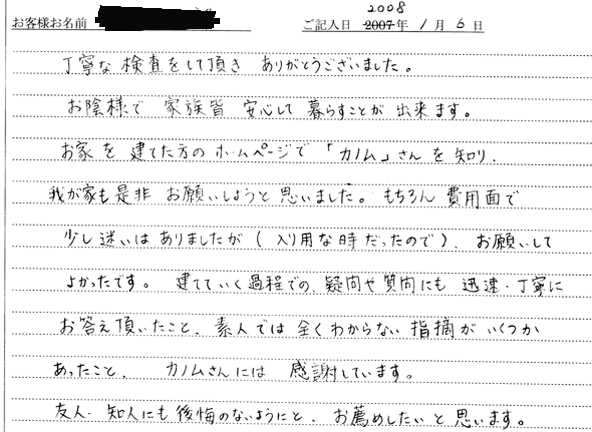 2008
お客様お名前 ご記入日 2007年 1月 6日
丁寧な検査をして頂き ありがとうございました。
お陰様で 家族皆 安心して 暮らすことが 出来ます。
お家を 建てた方の ホームページで 「カノム」さんを知り、
我が家も是非 お願いしようと思いました。もちろん 費用面で
少し迷いは ありましたが(入り用な時だったので)、お願いして
よかったです。 建てていく過程での、疑問や質問にも 迅速・丁寧に
お答え頂いたこと、素人では全くわからない 指摘が いくつか
あったこと、 カノムさんには 感謝しています。
友人・知人にも後悔のないようにと、お薦めしたいと思います。